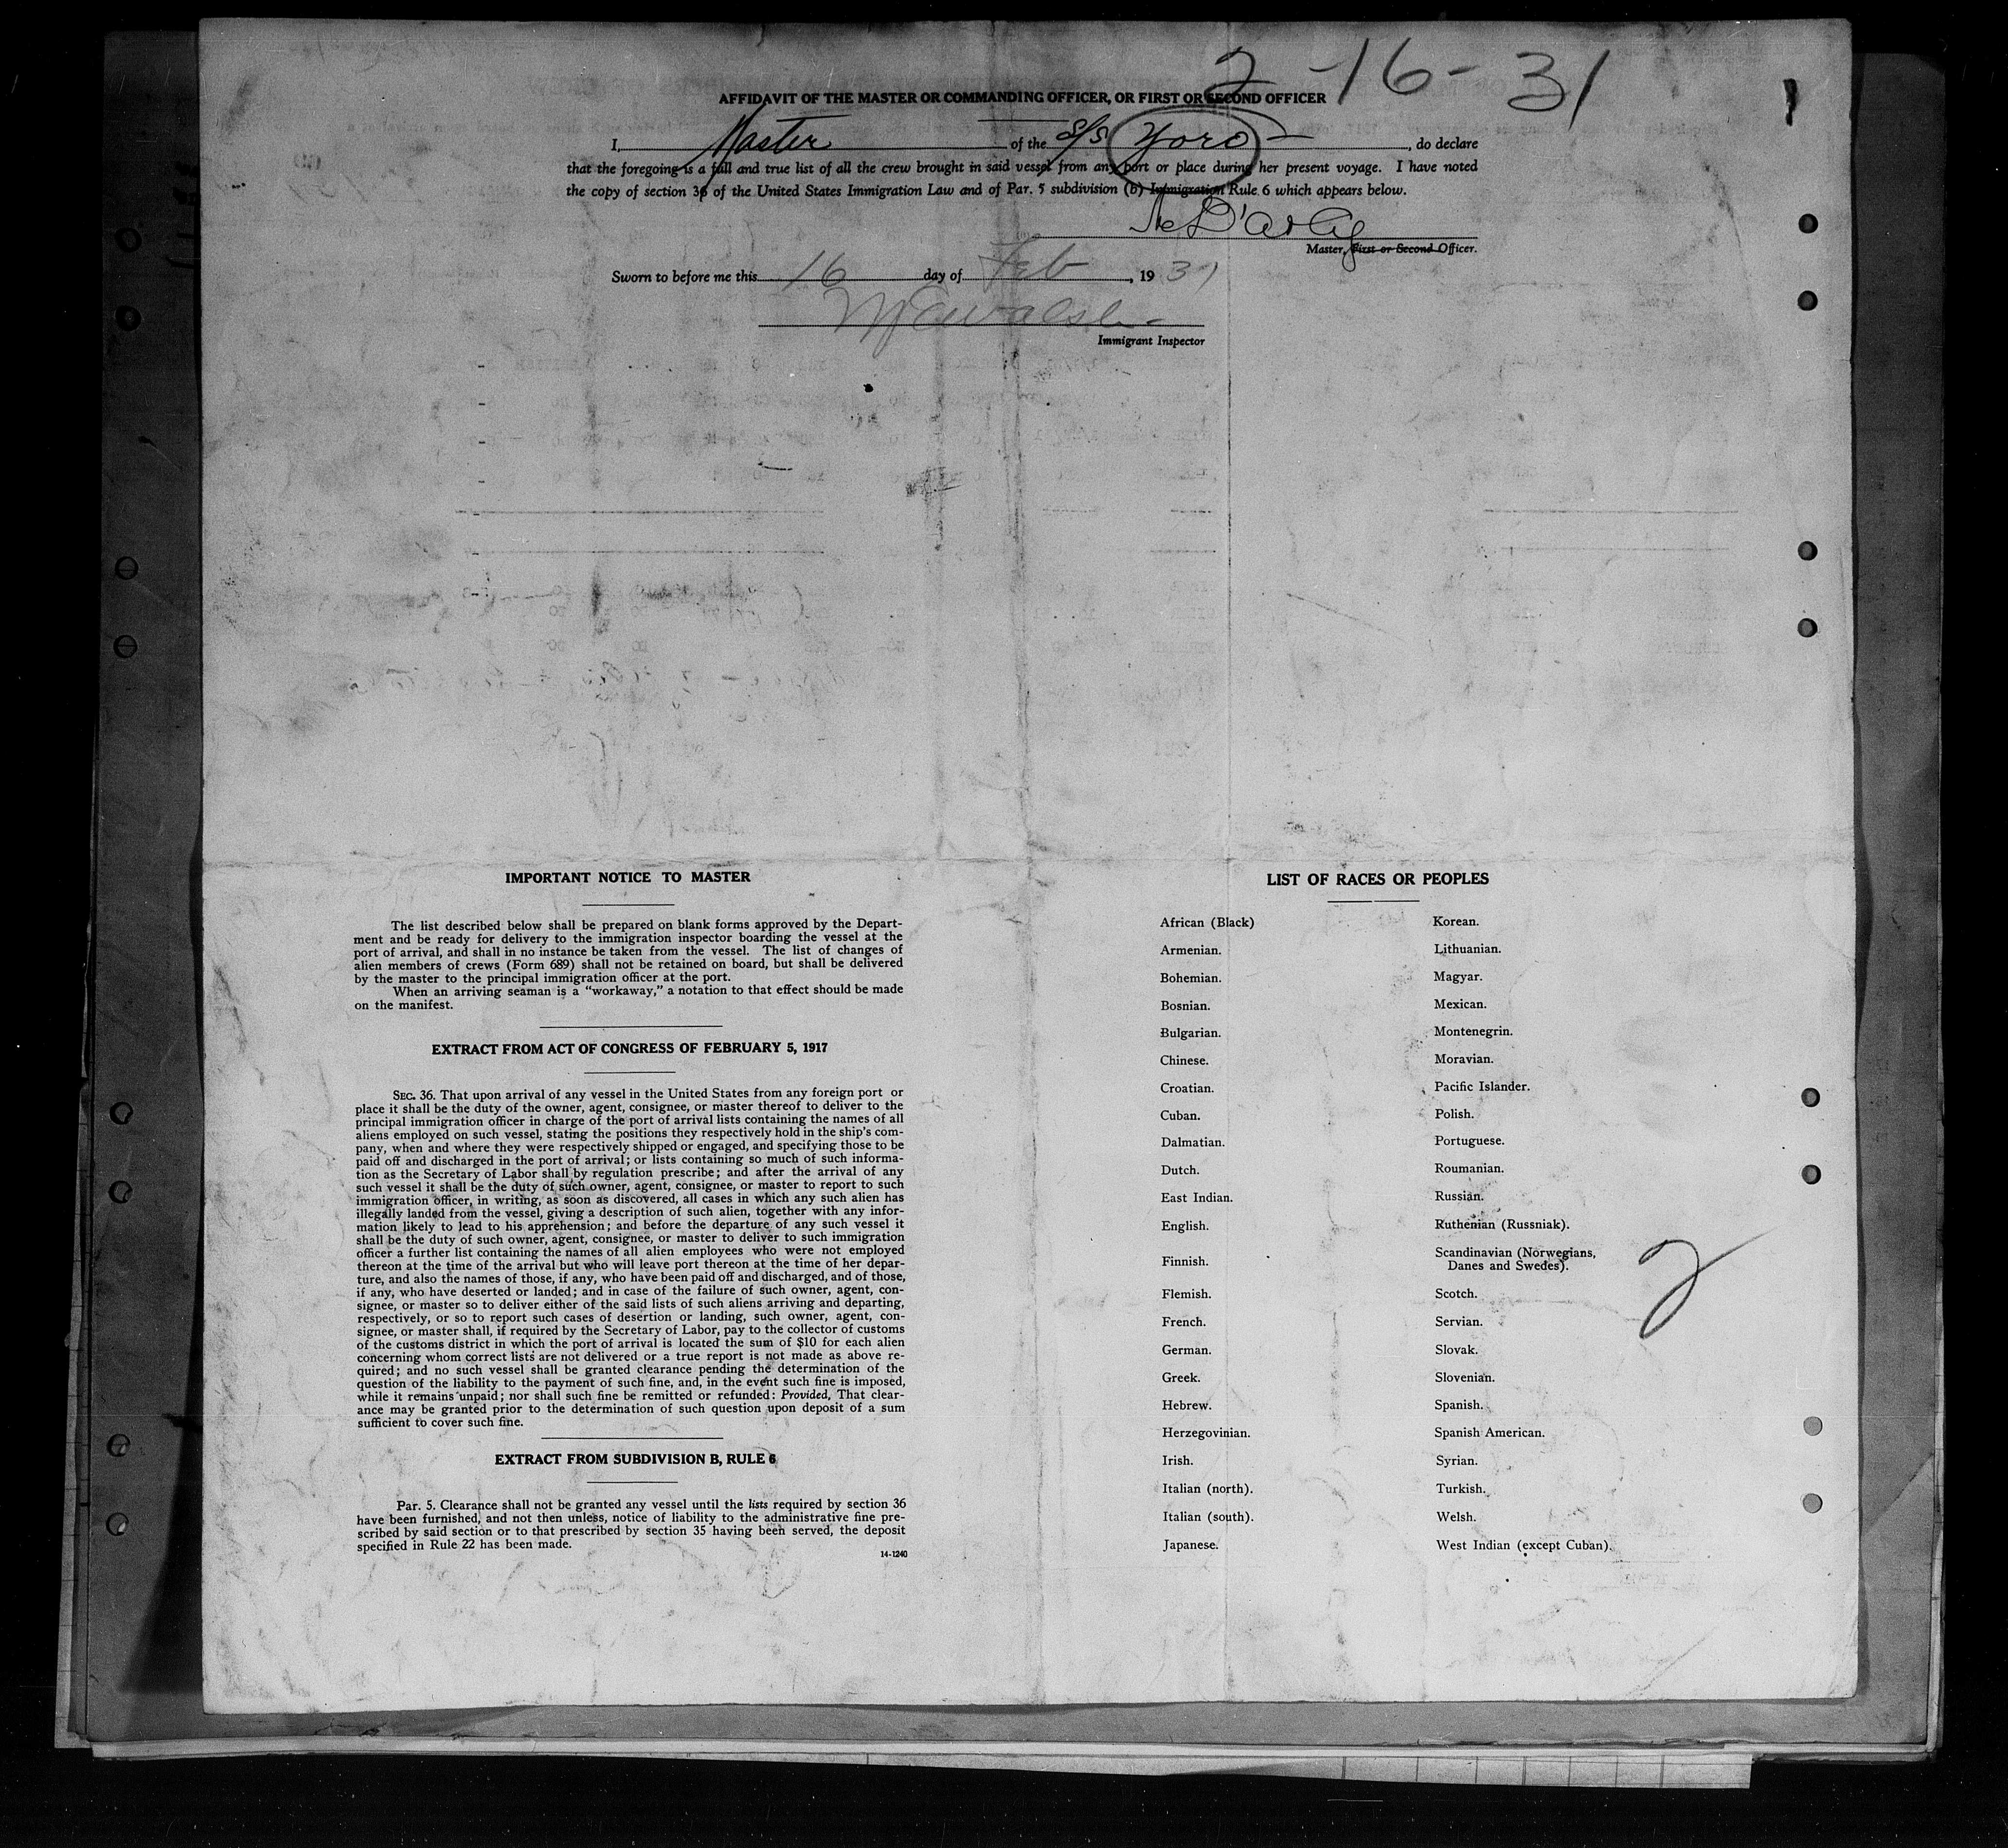 2-16-31
AFFIDAVIT OF THE MASTER OR COMMANDING OFFICER, OR FIRST OR SECOND OFFICER
I, Master of the S/S Yoro, do declare
that the foregoing is a full and true list of all the crew brought in said vessel from any port or place during her present voyage. I have noted
the copy of section 36 of the United States Immigration Law and of Par. 5 subdivision (b) Immigration Rule 6 which appears below.
Master, First or Second Officer.
Sworn to before me this 16 day of Feb, 19 31
Immigrant Inspector
IMPORTANT NOTICE TO MASTER
The list described below shall be prepared on blank forms approved by the Depart-
ment and be ready for delivery to the immigration inspector boarding the vessel at the
port of arrival, and shall in no instance be taken from the vessel. The list of changes of
alien members of crews (Form 689) shall not be retained on board, but shall be delivered
by the master to the principal immigration officer at the port.
When an arriving seaman is a “workaway,” a notation to that effect should be made
on the manifest.
EXTRACT FROM ACT OF CONGRESS OF FEBRUARY 5, 1917
SEC. 36. That upon arrival of any vessel in the United States from any foreign port or
place it shall be the duty of the owner, agent, consignee, or master thereof to deliver to the
principal immigration officer in charge of the port of arrival lists containing the names of all
aliens employed on such vessel, stating the positions they respectively hold in the ship's com-
pany, when and where they were respectively shipped or engaged, and specifying those to be
paid off and discharged in the port of arrival; or lists containing so much of such informa-
tion as the Secretary of Labor shall by regulation prescribe; and after the arrival of any
such vessel it shall be the duty of such owner, agent, consignee, or master to report to such
immigration officer, in writing, as soon as discovered, all cases in which any such alien has
illegally landed from the vessel, giving a description of such alien, together with any infor-
mation likely to lead to his apprehension; and before the departure of any such vessel it
shall be the duty of such owner, agent, consignee, or master to deliver to such immigration
officer a further list containing the names of all alien employees who were not employed
thereon at the time of the arrival but who will leave port thereon at the time of her depar-
ture, and also the names of those, if any, who have been paid off and discharged, and of those,
if any, who have deserted or landed; and in case of the failure of such owner, agent, con-
signee, or master so to deliver either of the said lists of such aliens arriving and departing,
respectively, or so to report such cases of desertion or landing, such owner, agent, con-
signee, or master shall, if required by the Secretary of Labor, pay to the collector of customs
of the customs district in which the port of arrival is located the sum of $10 for each alien
concerning whom correct lists are not delivered or a true report is not made as above re-
quired; and no such vessel shall be granted clearance pending the determination of the
question of the liability to the payment of such fine, and, in the event such fine is imposed,
while it remains unpaid; nor shall such fine be remitted or refunded: Provided, That clear-
ance may be granted prior to the determination of such question upon deposit of a sum
sufficient to cover such fine.
EXTRACT FROM SUBDIVISION B, RULE 6
Par. 5. Clearance shall not be granted any vessel until the lists required by section 36
have been furnished, and not then unless, notice of liability to the administrative fine pre-
scribed by said section or to that prescribed by section 35 having been served, the deposit
specified in Rule 22 has been made.
14-1240
LIST OF RACES OR PEOPLES
African (Black)
Armenian.
Bohemian.
Bosnian.
Bulgarian.
Chinese.
Croatian.
Cuban.
Dalmatian.
Dutch.
East Indian.
English.
Finnish.
Flemish.
French.
German.
Greek.
Hebrew.
Herzegovinian.
Irish.
Italian (north).
Italian (south).
Japanese.
Korean.
Lithuanian.
Magyar.
Mexican.
Montenegrin.
Moravian.
Pacific Islander.
Polish.
Portuguese.
Roumanian.
Russian.
Ruthenian (Russniak).
Scandinavian (Norwegians,
Danes and Swedes).
Scotch.
Servian.
Slovak.
Slovenian.
Spanish.
Spanish American.
Syrian.
Turkish.
Welsh.
West Indian (except Cuban).
2